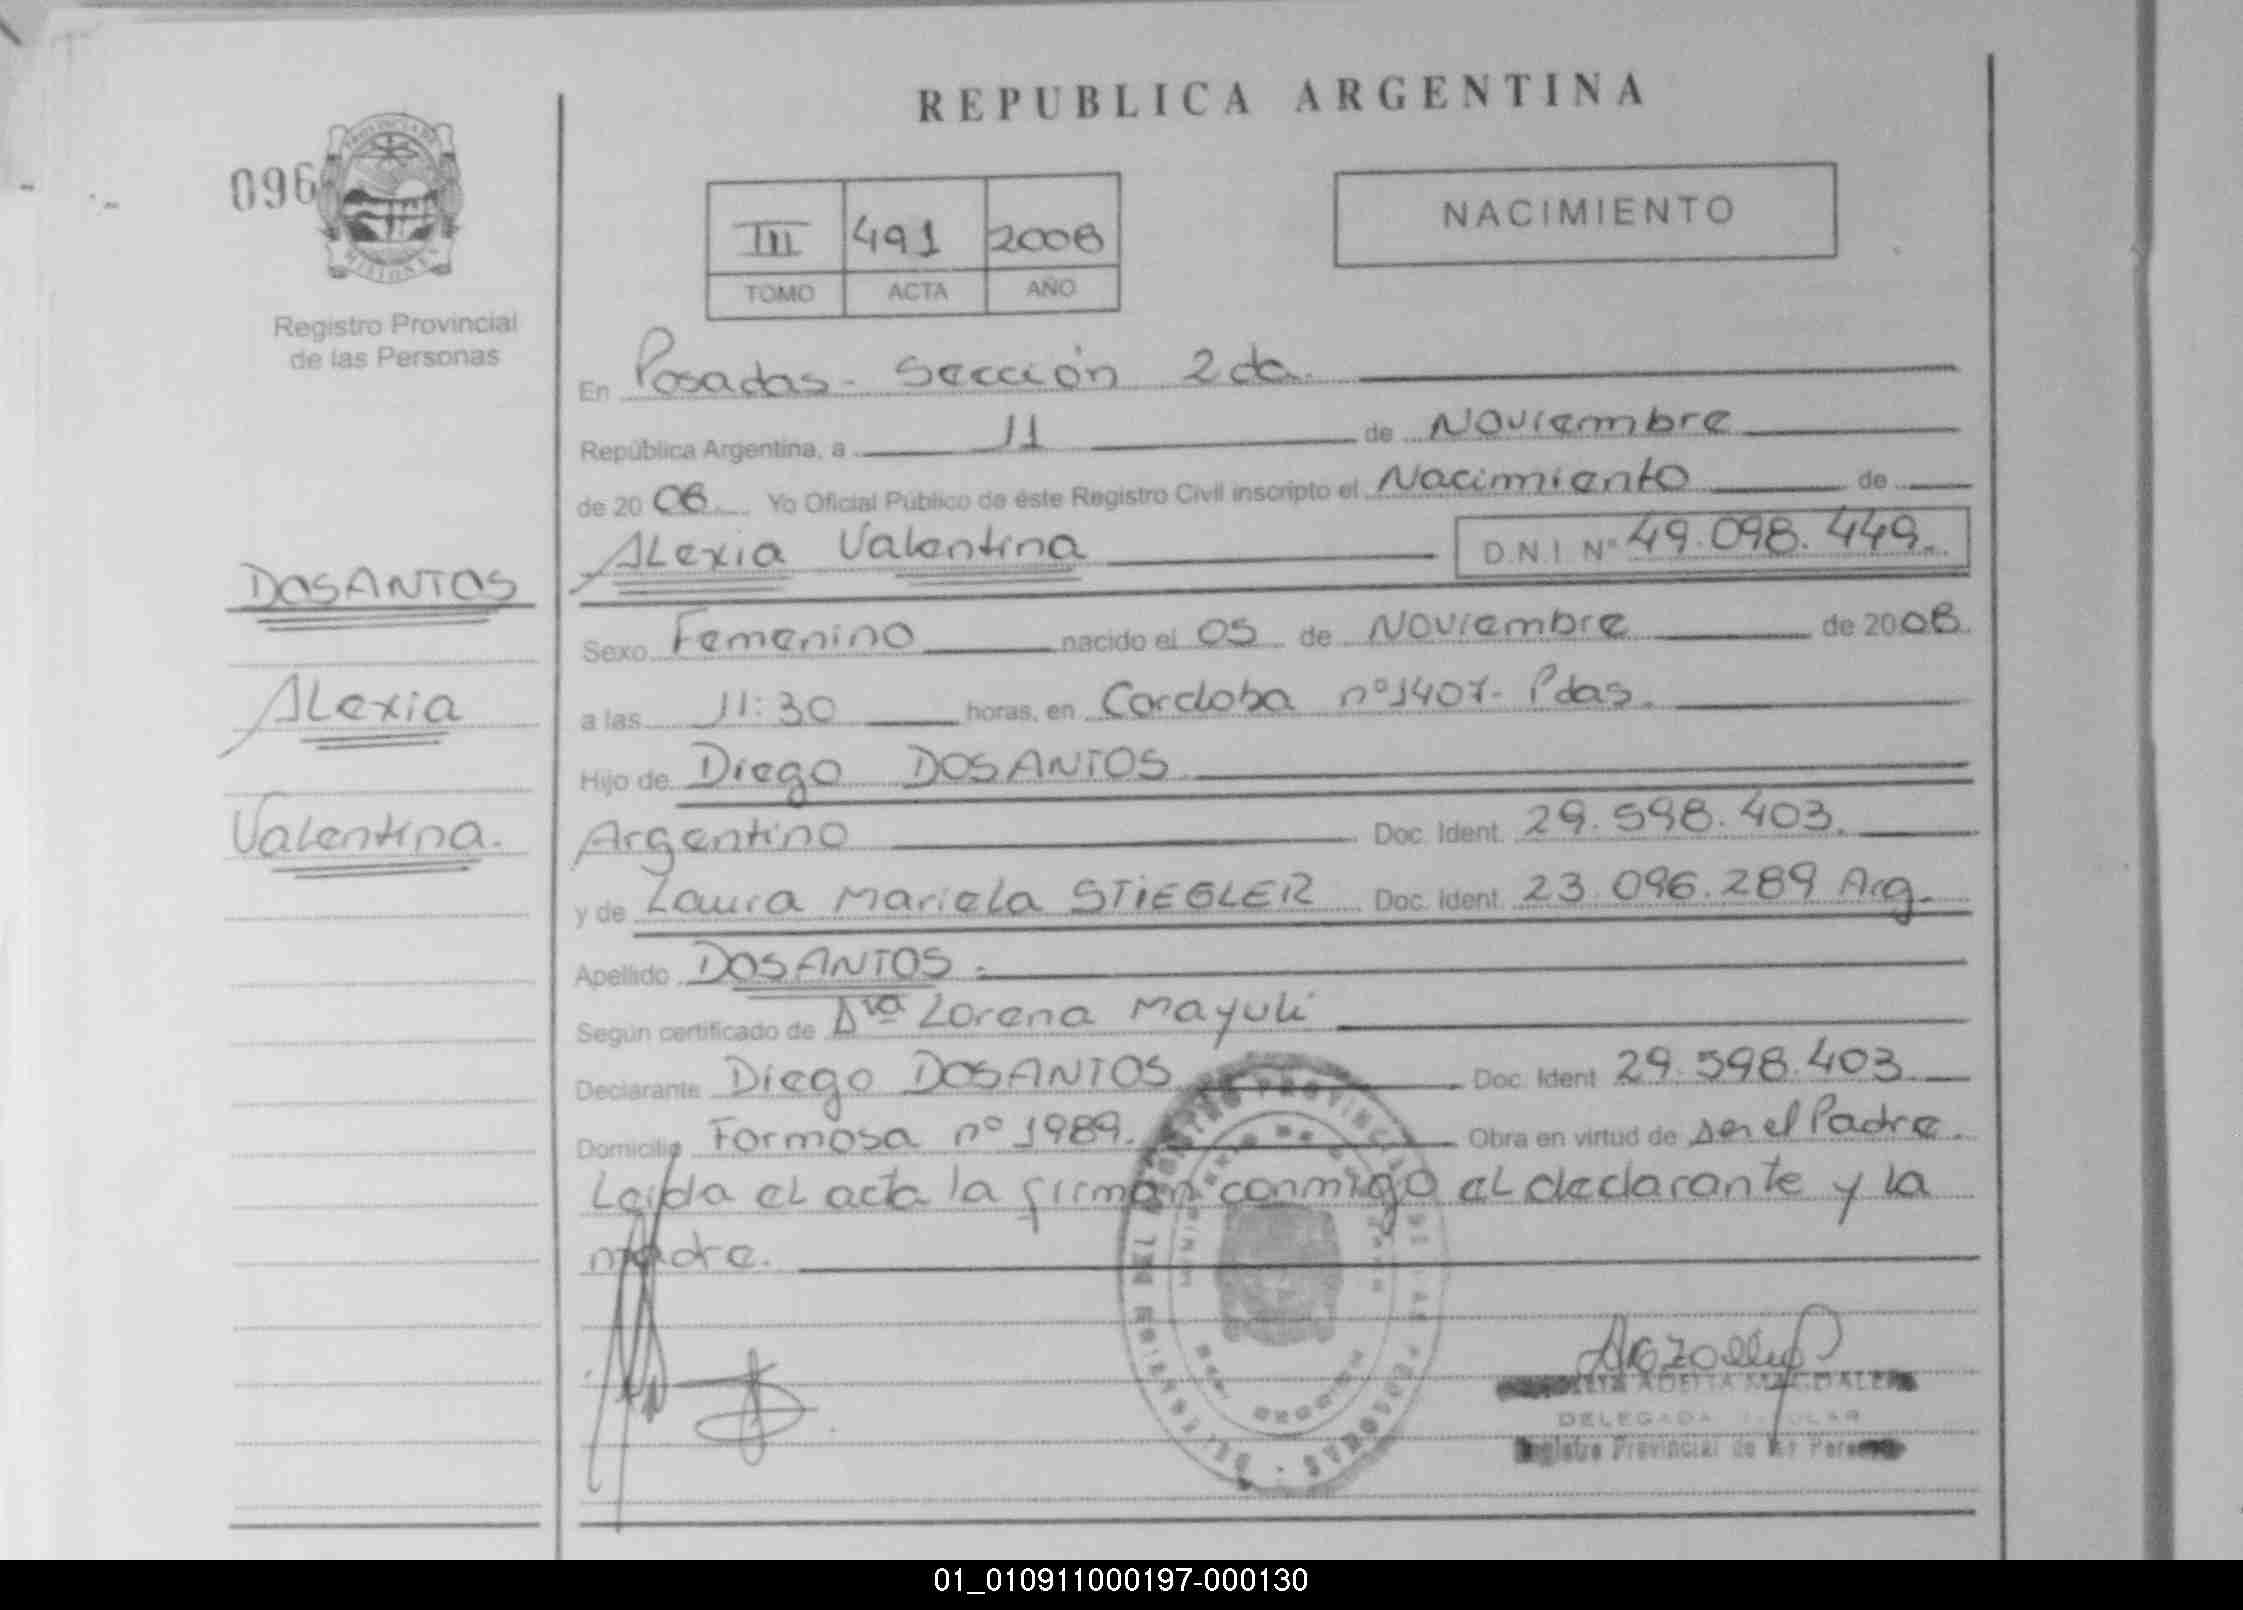 REPUBLICA ARGENTINA
096
PROVINCIA DE
MISIONES
Registro Provincial
de las Personas
III 491 2008
TOMO ACTA AÑO
NACIMIENTO
En Posadas - Sección 2da.
República Argentina, a 11 de Noviembre
de 20 08. Yo Oficial Público de éste Registro Civil inscripto el Nacimiento de
Alexia Valentina D.N.I. Nº 49.098.449.
DOSANTOS
Alexia
Valentina.
Sexo Femenino nacido el 05 de Noviembre de 2008.
a las 11:30 horas, en Cordoba nº 1407- Pdas.
Hijo de Diego DOSANTOS
Argentino Doc. Ident. 29.598.403.
y de Laura Mariela STIEGLER Doc. Ident. 23.096.289 Arg.
Apellido DOSANTOS.
Según certificado de Dra Lorena Mayuli
Declarante Diego DOSANTOS Doc. Ident. 29.598.403.
Domicilio Formosa nº 1989. Obra en virtud de ser el Padre.
Leida el acta la firman conmigo el declarante y la
madre.
ADELIA MAGDALENA
DELEGADA TITULAR
Registro Provincial de las Personas
01_010911000197-000130